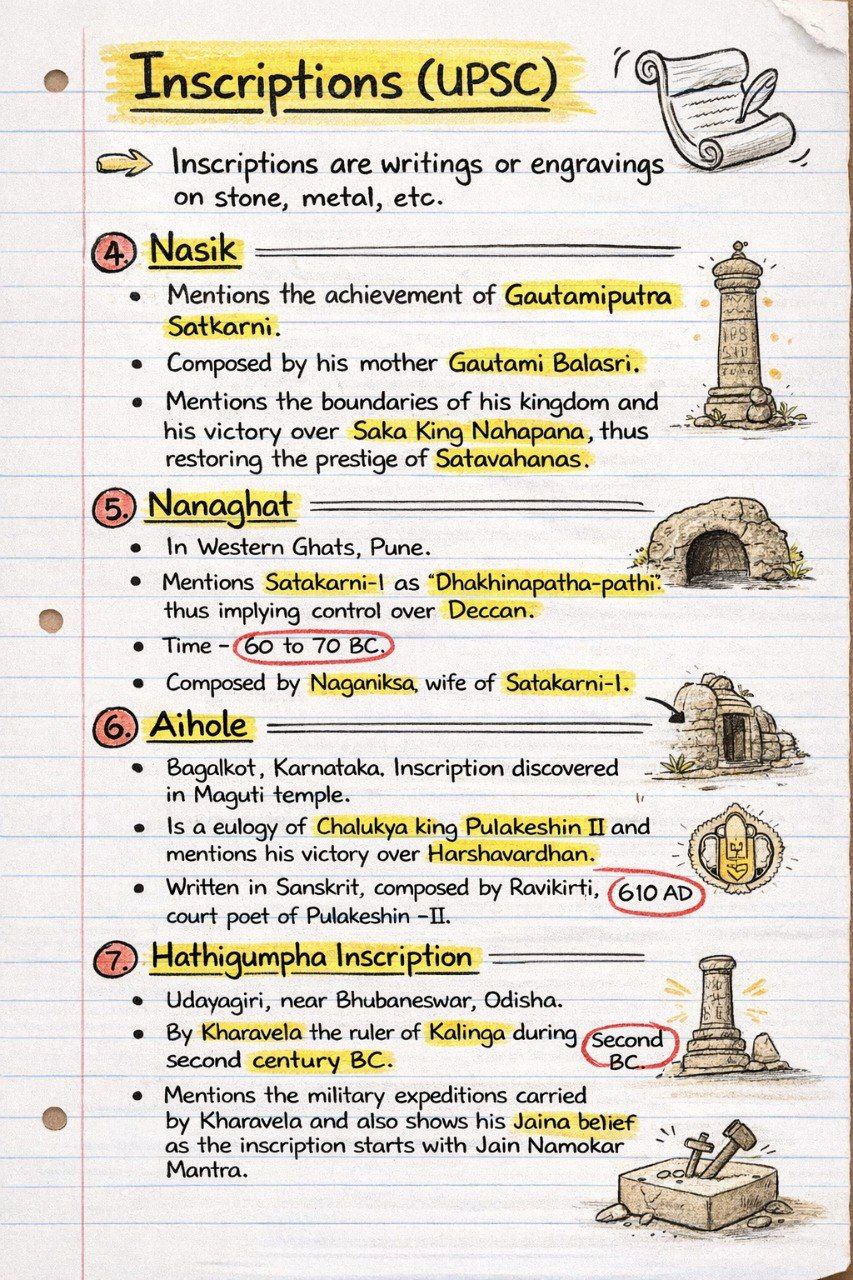 Inscriptions (UPSC)
Inscriptions are writings or engravings
on stone, metal, etc.
4. Nasik
• Mentions the achievement of Gautamiputra
Satkarni.
• Composed by his mother Gautami Balasri.
• Mentions the boundaries of his kingdom and
his victory over Saka King Nahapana, thus
restoring the prestige of Satavahanas.
5. Nanaghat
• In Western Ghats, Pune.
• Mentions Satakarni-I as "Dhakhinapatha-pathi".
thus implying control over Deccan.
• Time - 60 to 70 BC.
• Composed by Naganiksa, wife of Satakarni-I.
6. Aihole
• Bagalkot, Karnataka. Inscription discovered
in Maguti temple.
• Is a eulogy of Chalukya king Pulakeshin II and
mentions his victory over Harshavardhan.
• Written in Sanskrit, composed by Ravikirti, 610 AD
court poet of Pulakeshin -II.
7. Hathigumpha Inscription
• Udayagiri, near Bhubaneswar, Odisha.
• By Kharavela the ruler of Kalinga during Second
second century BC. BC.
• Mentions the military expeditions carried
by Kharavela and also shows his Jaina belief
as the inscription starts with Jain Namokar
Mantra.